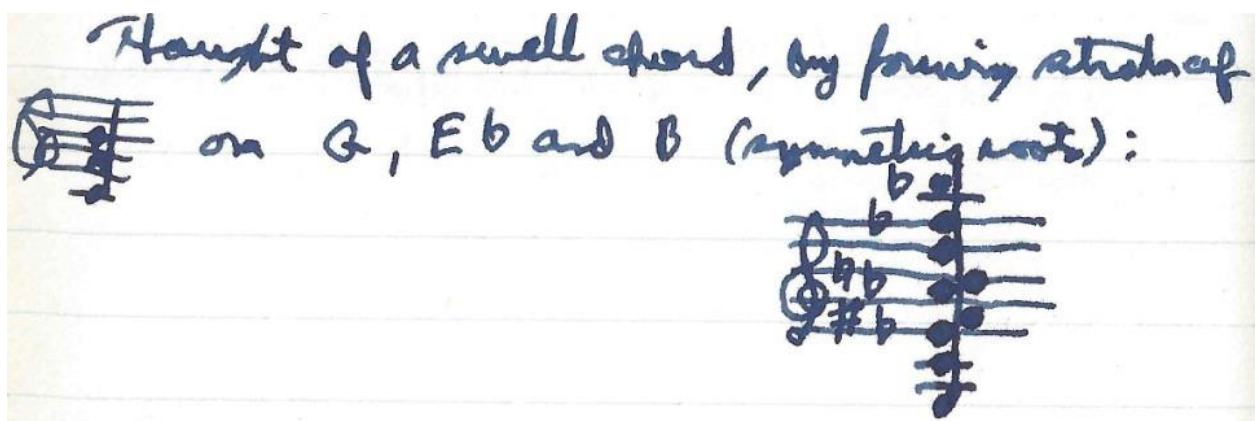 Thought of a swell chord, by forming strata of
on G, Eb and B (symmetric roots):